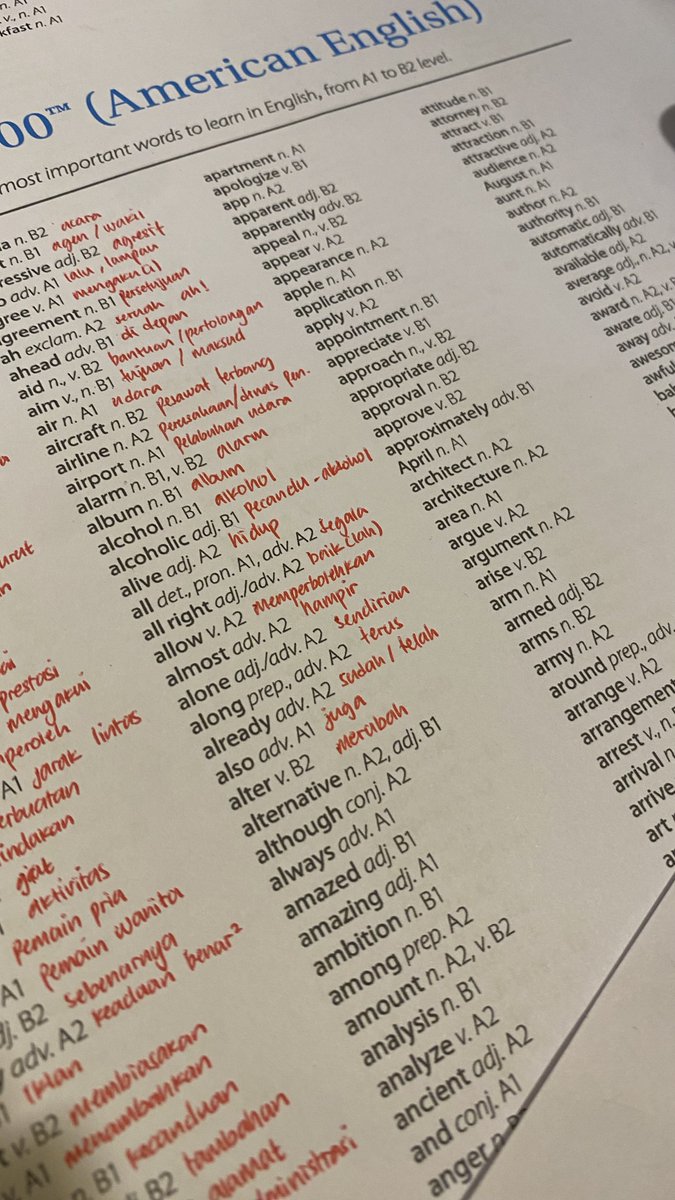 v., n. A1
kfast n. A1
00™ (American English)
most important words to learn in English, from A1 to B2 level.
a n. B2 acara
t n. B1 agen / wakil
ressive adj. B2 agresif
o adv. A1 lalu, lampau
gree v. A1 mengakui
greement n. B1 persetujuan
ah exclam. A2 seruan ah!
ahead adv. B1 di depan
aid n., v. B2 bantuan / pertolongan
aim v., n. B1 tujuan / maksud
air n. A1 udara
aircraft n. B2 pesawat terbang
airline n. A2 perusahaan/dinas pen.
airport n. A1 pelabuhan udara
alarm n. B1, v. B2 alarm
album n. B1 album
alcohol n. B1 alkohol
alcoholic adj. B1 pecandu-alkohol
alive adj. A2 hidup
all det., pron. A1, adv. A2 segala
all right adj./adv. A2 baik(lah)
allow v. A2 memperbolehkan
almost adv. A2 hampir
alone adj./adv. A2 sendirian
along prep., adv. A2 terus
already adv. A2 sudah / telah
also adv. A1 juga
alter v. B2 merubah
alternative n. A2, adj. B1
although conj. A2
always adv. A1
amazed adj. B1
amazing adj. A1
ambition n. B1
among prep. A2
amount n. A2, v. B2
analysis n. B1
analyze v. A2
ancient adj. A2
and conj. A1
anger n.
apartment n. A1
apologize v. B1
app n. A2
apparent adj. B2
apparently adv. B2
appeal n., v. B2
appear v. A2
appearance n. A2
apple n. A1
application n. B1
apply v. A2
appointment n. B1
appreciate v. B1
approach n., v. B2
appropriate adj. B2
approval n. B2
approve v. B2
approximately adv. B1
April n. A1
architect n. A2
architecture n. A2
area n. A1
argue v. A2
argument n. A2
arise v. B2
arm n. A1
armed adj. B2
arms n. B2
army n. A2
around prep., adv.
arrange v. A2
arrangement
arrest v., n.
arrival n
arrive
art
attitude n. B1
attorney n. B2
attract v. B1
attraction n. B1
attractive adj. A2
audience n. A2
August n. A1
aunt n. A1
author n. A2
authority n. B1
automatic adj. B1
automatically adv. B1
available adj. A2
average adj., n. A2, v.
avoid v. A2
award n. A2, v. B
aware adj. B1
away adv.
awesom
awful
prestasi
mengakui
A1 jarak lintas
giat
aktivitas
pemain pria
A1 pemain wanita
dj. B2 sebenarnya
adv. A2 keadaan benar²
Iklan
v. B2 membiasakan
v. A1 menambahkan
n. B1 kecanduan
B2 tambahan
alamat